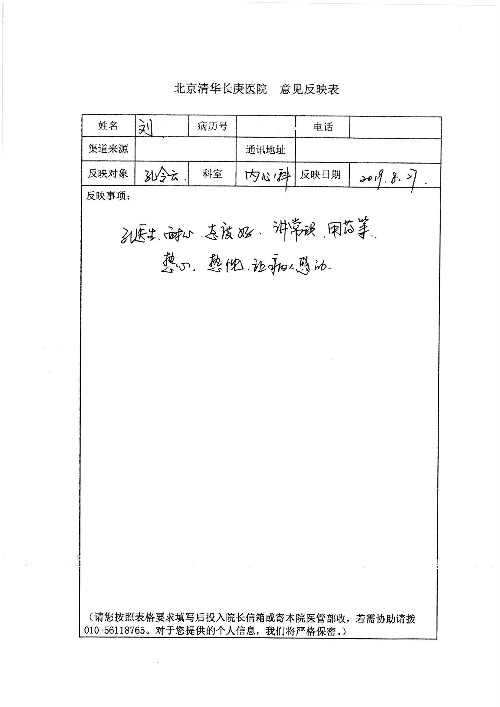 北京清华长庚医院 意见反映表
姓名 刘 病历号 电话
渠道来源 通讯地址
反映对象 孔令云. 科室 内心科 反映日期 2019.8.27.
反映事项:
孔医生,耐心.态度好.讲常识.用药等.
热心.热忱.让病人感动.
(请您按照表格要求填写后投入院长信箱或寄本院医管部收,若需协助请拨
010-56118765。对于您提供的个人信息,我们将严格保密。)